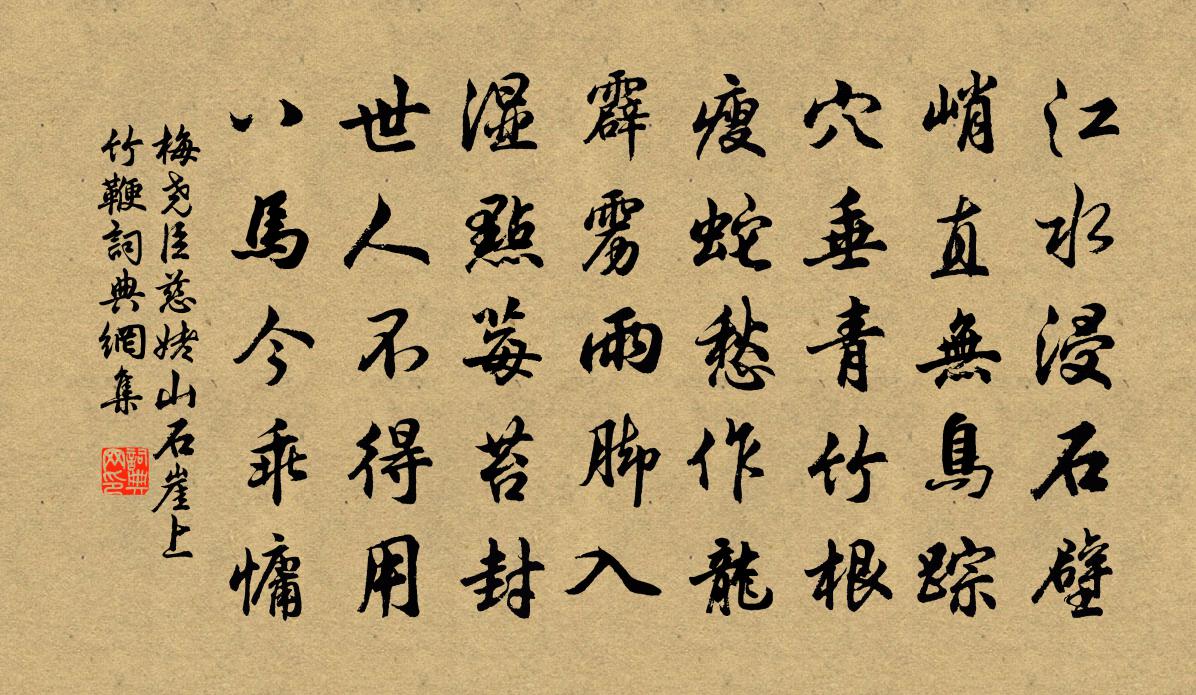 江水浸石壁
峭直無鳥踪
穴垂青竹根
瘦蛇愁作龍
霹雳雨脚入
濕點莓苔封
世人不得用
八馬今乖慵
梅尧臣慈姥山石崖上
竹鞭詞典網集
詞典网印